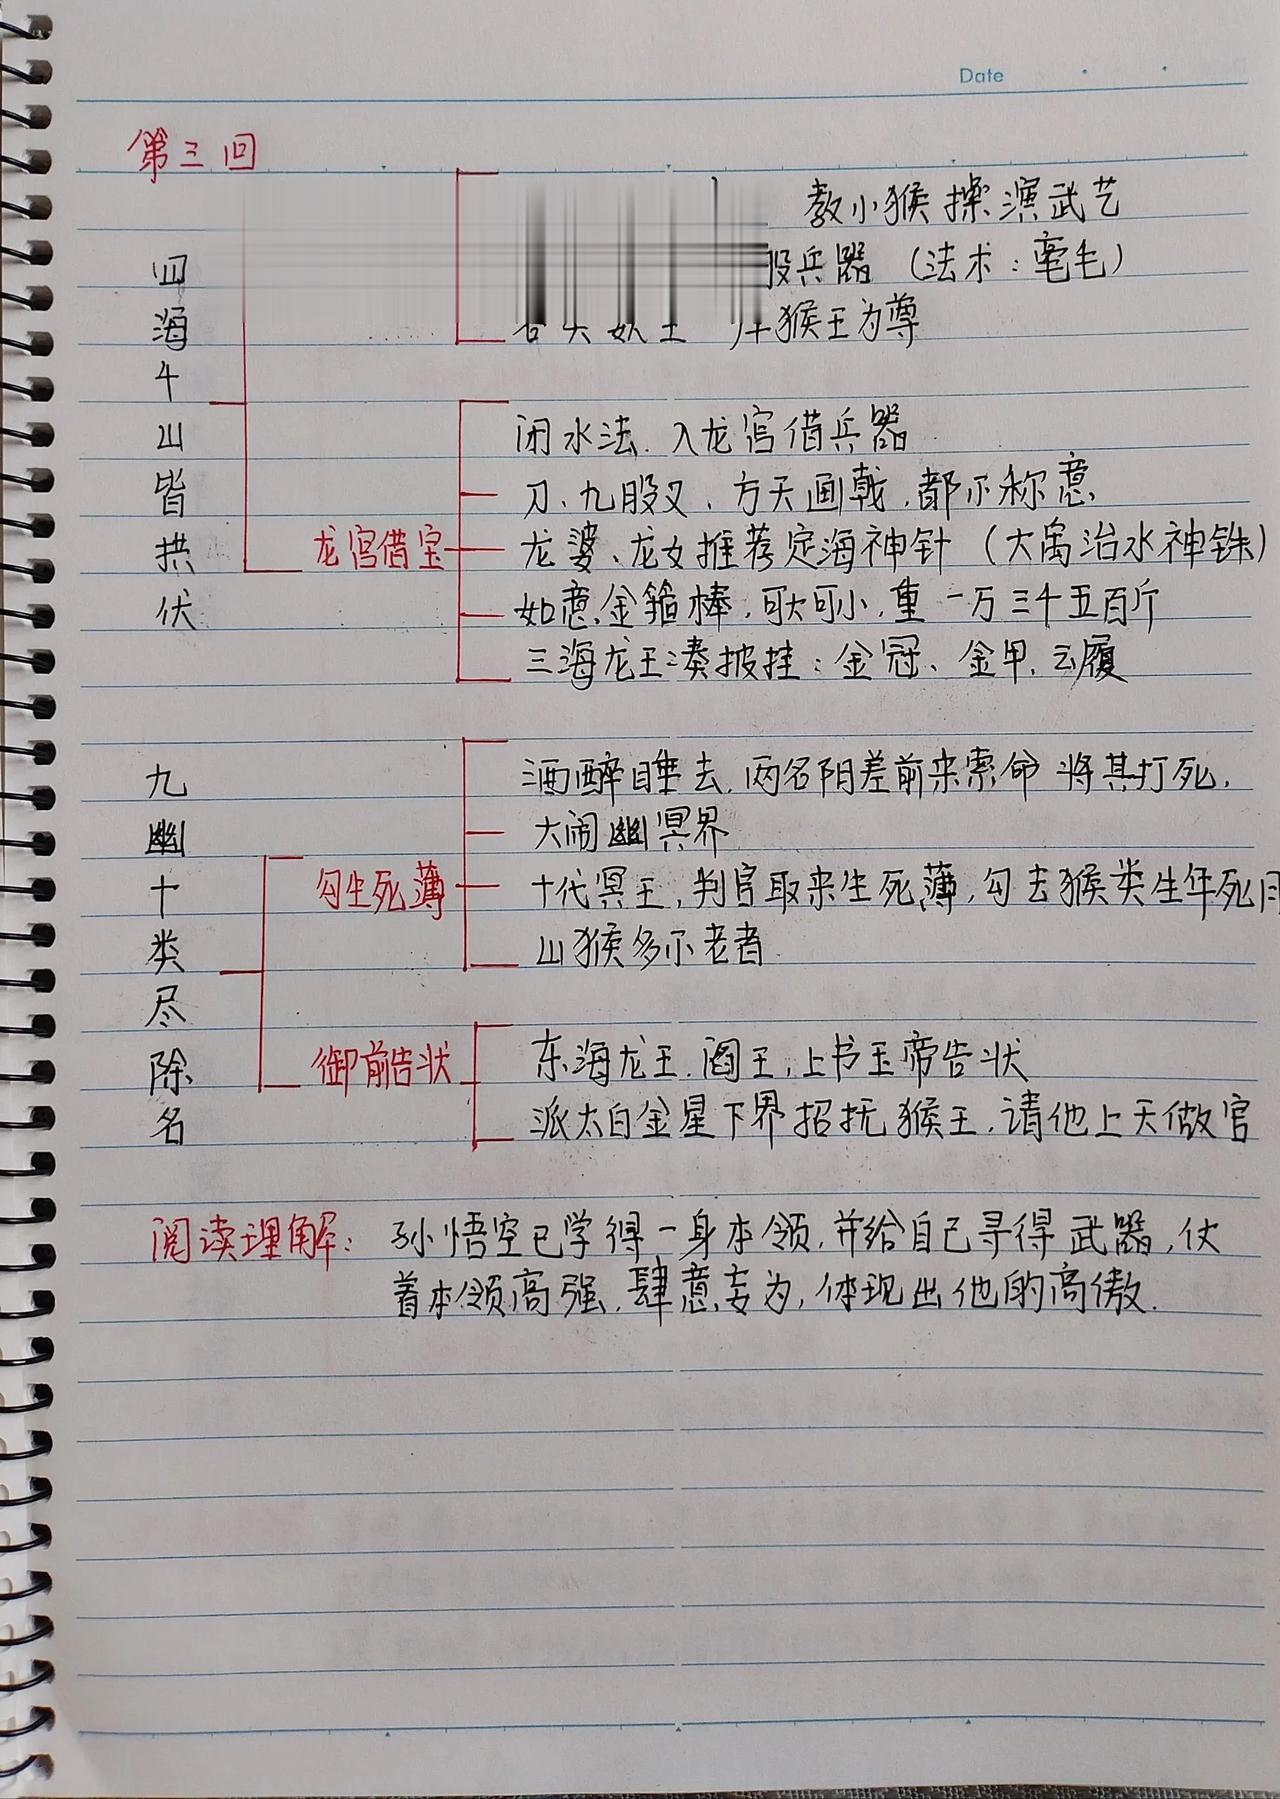 Date
第三回
教小猴操演武艺
股兵器（法术：毫毛）
猴王为尊
四海千山皆拱伏
龙宫借宝
闭水法、入龙宫借兵器
刀、九股叉、方天画戟，都不称意
龙婆、龙女推荐定海神针（大禹治水神铁）
如意金箍棒，可大可小，重一万三千五百斤
三海龙王凑披挂：金冠、金甲、云履
九幽十类尽除名
勾生死薄
酒醉睡去，两名阴差前来索命 将其打死，
大闹幽冥界
十代冥王，判官取来生死薄，勾去猴类生年死月
山猴多不老者
御前告状
东海龙王、阎王，上书玉帝告状
派太白金星下界招抚猴王，请他上天做官
阅读理解：孙悟空已学得一身本领，并给自己寻得武器，仗
着本领高强，肆意妄为，体现出他的高傲.